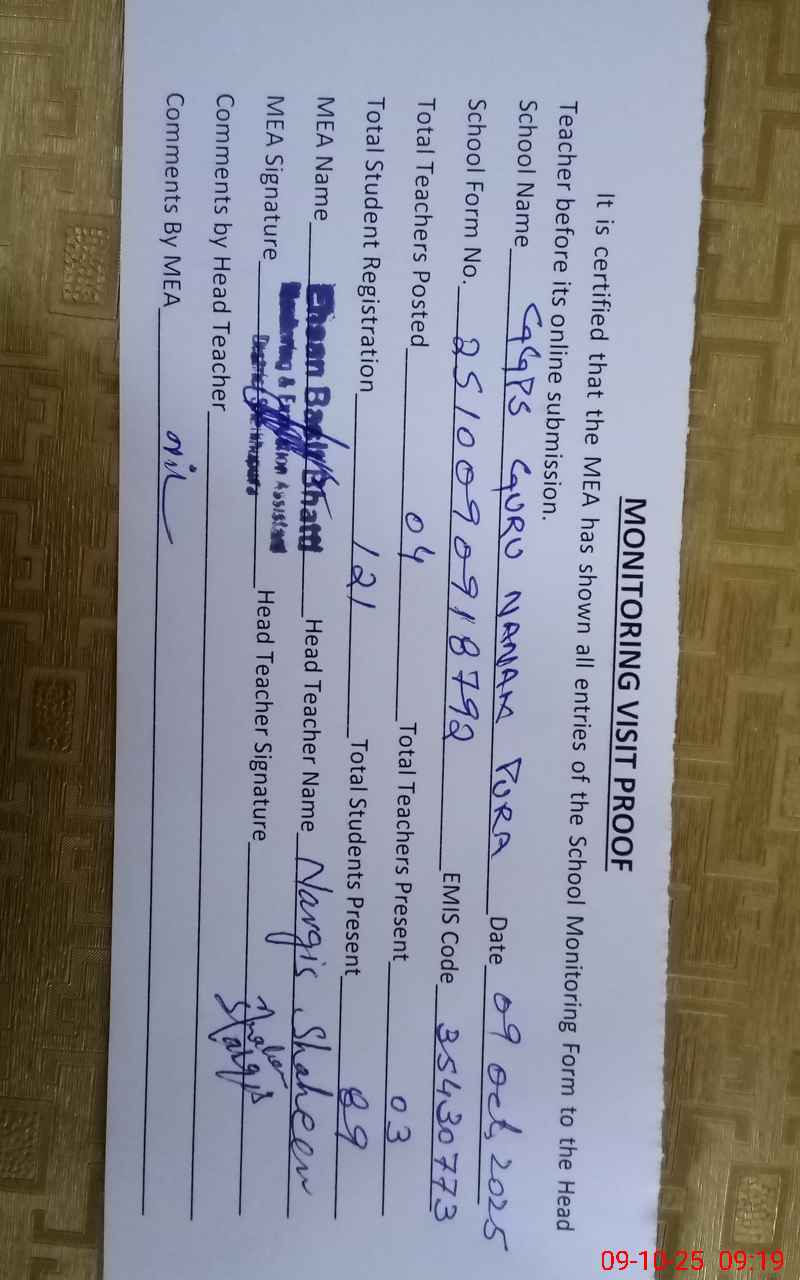 MONITORING VISIT PROOF
It is certified that the MEA has shown all entries of the School Monitoring Form to the Head
Teacher before its online submission.
School Name GGPS GURU NANAK PURA Date 09 Oct, 2025
School Form No. 2510090918792 EMIS Code 35430773
Total Teachers Posted 04 Total Teachers Present 03
Total Student Registration 121 Total Students Present 89
MEA Name Ehsan Bhatti Head Teacher Name Nargis Shaheen
Monitoring & Evaluation Assistant
MEA Signature District Head Teacher Signature Nargis
Comments by Head Teacher
Comments By MEA nil
09-10-25 09:19